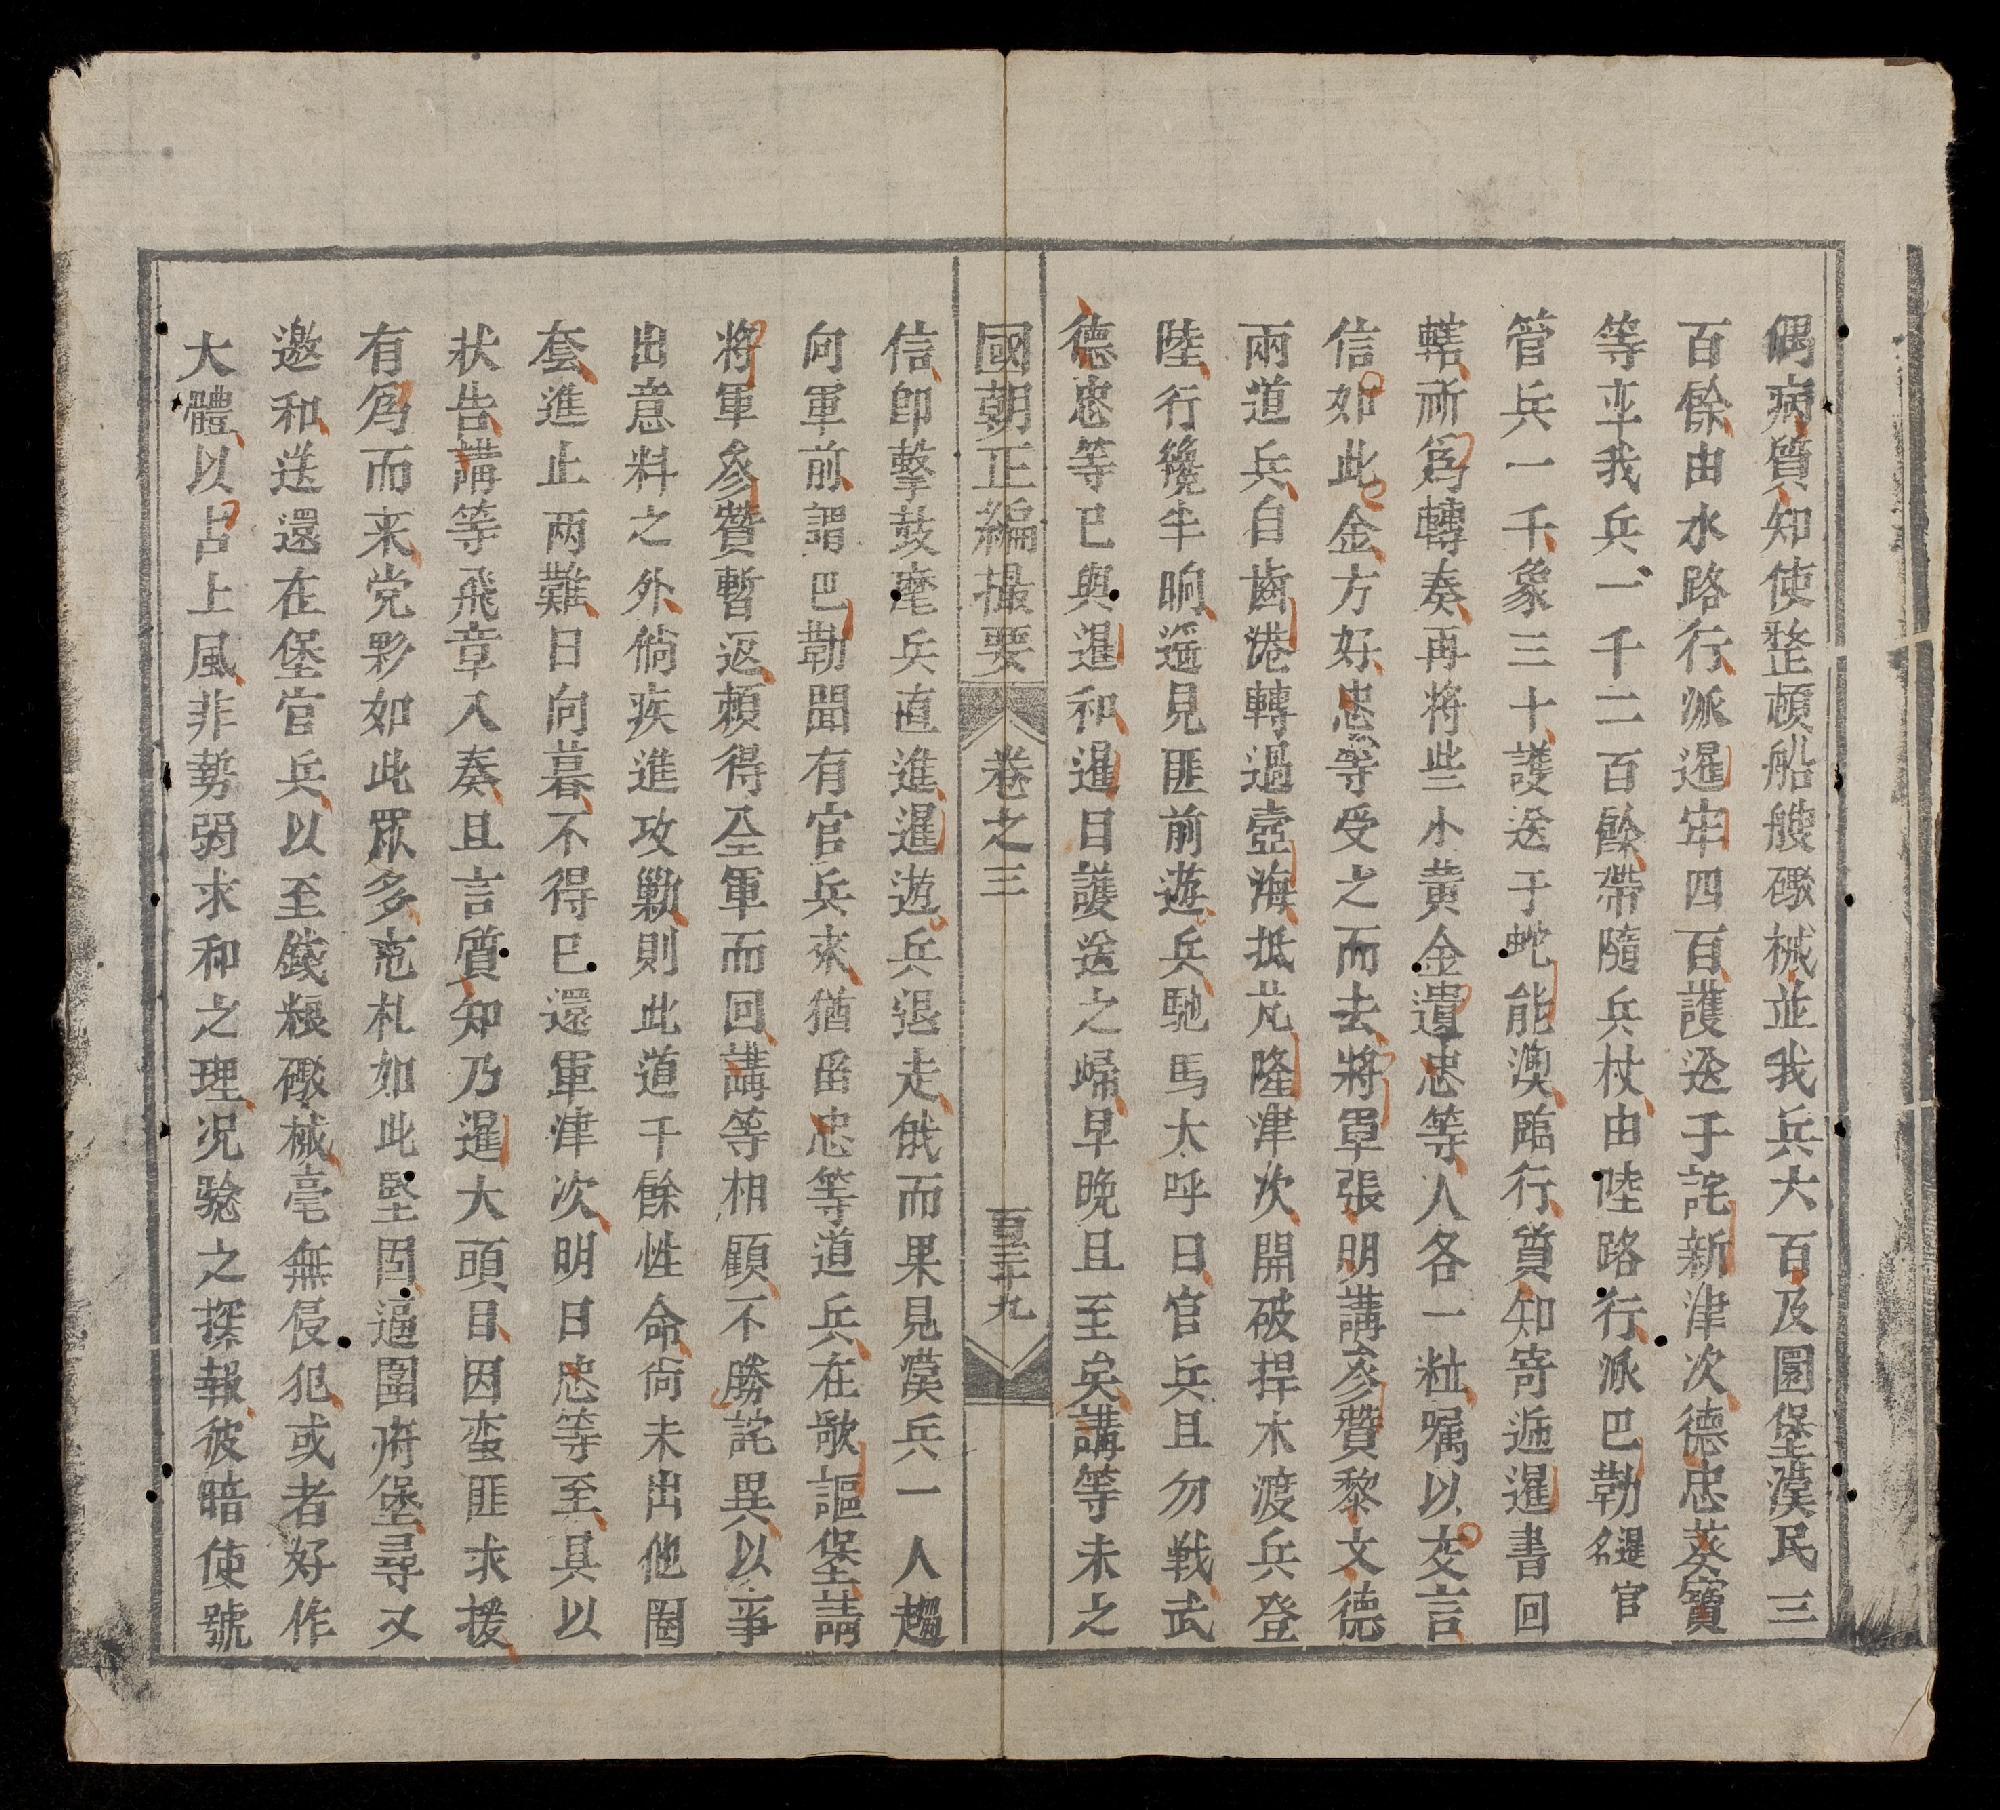 偶病質知使整頓船艘礮械並我兵大百及圜堡漢民三
百餘由水路行派暹牢四百護送于詫新津次德忠葵寶
等率我兵一千二百餘帶隨兵杖由陸路行派巴勒暹官名
管兵一千象三十護送于蛇能澳臨行質知寄遞暹書回
轄所爲轉奏再將些小黄金遺忠等人各一粒嘱以交言
信如此金方好忠等受之而去將軍張明講參贊黎文德
兩道兵自齒港轉過壺海抵芃隆津次開破捍木渡兵登
陸行纔半晌遥見匪前遊兵馳馬大呼曰官兵且勿戦武
德忠等已與暹和暹目護送之歸早晚且至矣講等未之
國朝正編撮要 卷之三 百三十九
信即擊鼓麾兵直進暹遊兵退走俄而果見漢兵一人趨
向軍前謂巴勒聞有官兵來猶畱忠等道兵在歌謳堡請
將軍參贊暫返頼得全軍而回講等相顧不勝詫異以事
出意料之外倘疾進攻勦則此道千餘性命尚未出他圈
套進止两難日向暮不得已還軍津次明日忠等至具以
状告講等飛章入奏且言質知乃暹大頭目因蛮匪求援
有爲而来党夥如此眾多克札如此堅固逼圍府堡尋又
邀和送還在堡官兵以至錢粮礮械毫無侵犯或者好作
大體以占上風非势弱求和之理况騐之探報彼暗使號